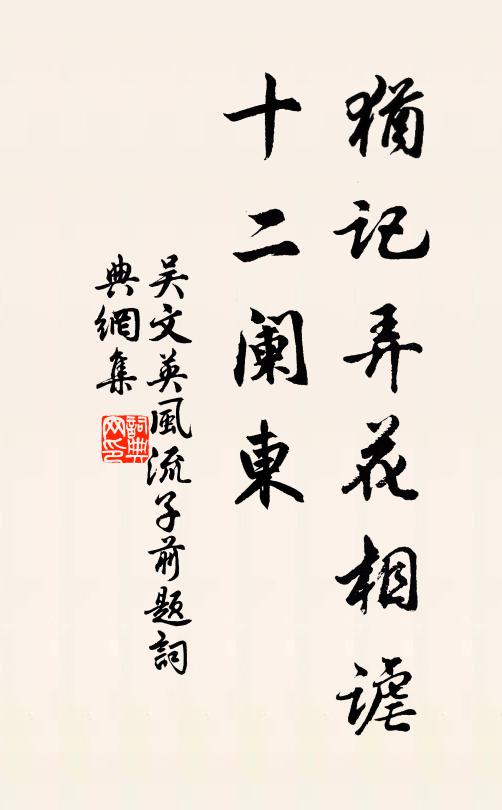 猶記弄花相謔
十二阑東
吴文英風流子前題詞
典網集
詞典
网印